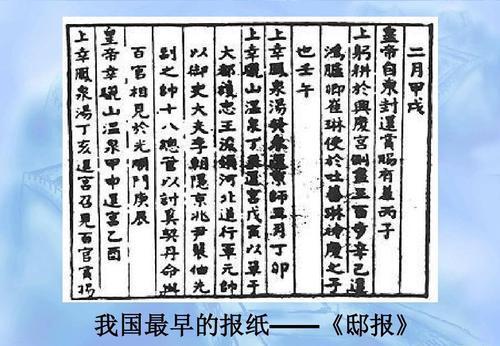 二月甲戌
皇帝自東封還賞賜有差丙子
上躬耕於興慶宮側盡三百步辛巳遣
鴻臚卿崔琳使於吐蕃琳神慶之子
也壬午
上幸鳳泉湯癸未還京師月丁卯
上幸驪山溫泉丁亥還宮戊寅以單于
大都護忠王浚領河北道行軍元帥
以御史大夫李朝隱京兆尹裴伷先
副之帥十八總管以討奚契丹命與
百官相見於光順門庚辰
皇帝幸驪山溫泉甲申還宮乙酉
上幸鳳泉湯丁亥還宮召見百官賞賜
我国最早的报纸——《邸报》